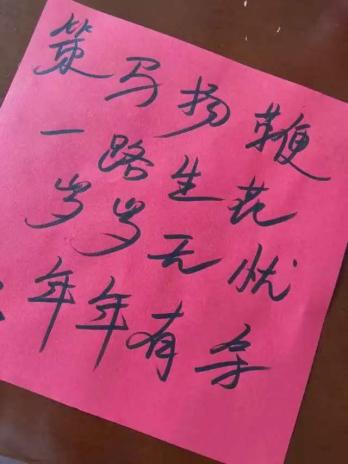 策马扬鞭
一路生花
岁岁无忧
年年有余